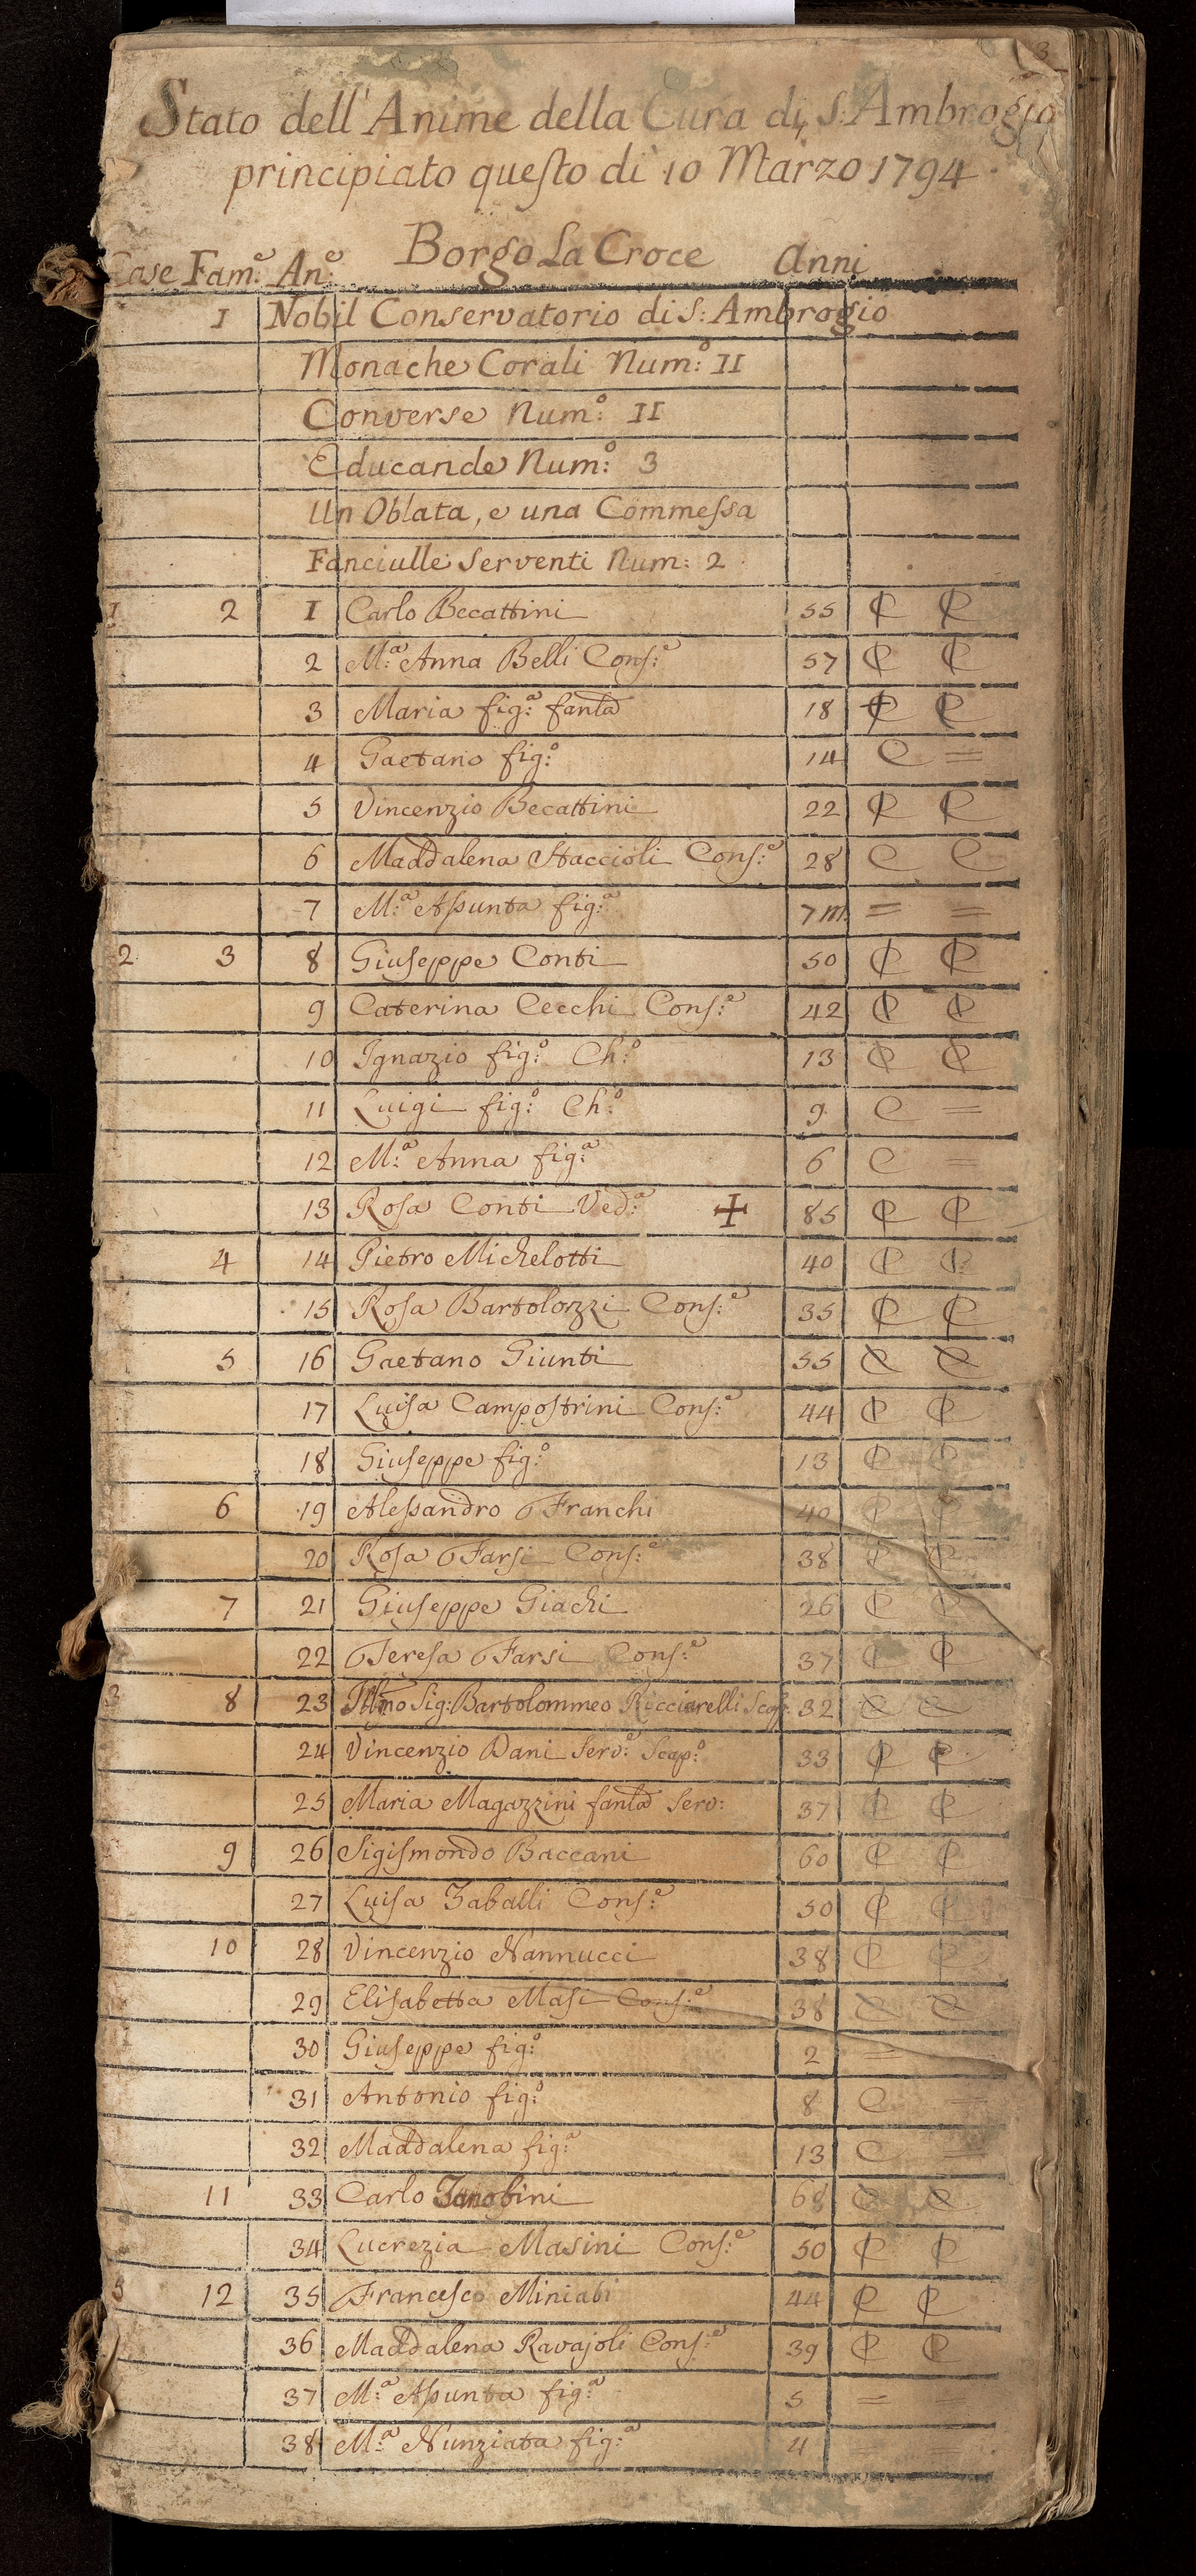 3
Stato dell'Anime della Cura di S: Ambrogio
principiato questo di 10 Marzo 1794
Case Fam:e An:e Borgo La Croce Anni
1 Nobil Conservatorio di S: Ambrogio
Monache Corali Num:o II
Converse Num:o II
Educande Num:o 3
Un Oblata, e una Commessa
Fanciulle Serventi Num: 2
1 2 1 Carlo Becattini 55 C C
2 M:a Anna Belli Cons:e 57 C C
3 Maria fig:a fant:a 18 C C
4 Gaetano fig:o 14 C =
5 Vincenzio Becattini 22 C C
6 Maddalena Staccioli Cons:e 28 C C
7 M:a Assunta fig:a 7 m. = =
2 3 8 Giuseppe Conti 50 C C
9 Caterina Cecchi Cons:e 42 C C
10 Ignazio fig:o Ch:o 13 C C
11 Luigi fig:o Ch:o 9 C =
12 M:a Anna fig:a 6 C =
13 Rosa Conti Ved:a ✢ 85 C C
4 14 Pietro Michelotti 40 C C
15 Rosa Bartolozzi Cons:e 35 C C
5 16 Gaetano Giunti 55 C C
17 Luisa Campostrini Cons:e 44 C C
18 Giuseppe fig:o 13 C C
6 19 Alessandro Franchi 40 C C
20 Rosa Farsi Cons:e 38 C C
7 21 Giuseppe Giachi 26 C C
22 Teresa Farsi Cons:e 37 C C
3 8 23 Ill:mo Sig: Bartolommeo Ricciarelli Scap: 32 C C
24 Vincenzio Dani Serv:e Scap:o 33 C C
25 Maria Magazzini fant:a Serv: 37 C C
9 26 Sigismondo Baccani 60 C C
27 Luisa Zaballi Cons:e 50 C C
10 28 Vincenzio Nannucci 38 C C
29 Elisabetta Masi Cons:e 38 C C
30 Giuseppe fig:o 2 =
31 Antonio fig:o 8 C
32 Maddalena fig:a 13 C =
11 33 Carlo Zanobini 68 C C
34 Lucrezia Masini Cons:e 50 C C
5 12 35 Francesco Miniati 44 C C
36 Maddalena Ravajoli Cons:e 39 C C
37 M:a Assunta fig:a 5 = =
38 M:a Nunziata fig:a 4 =